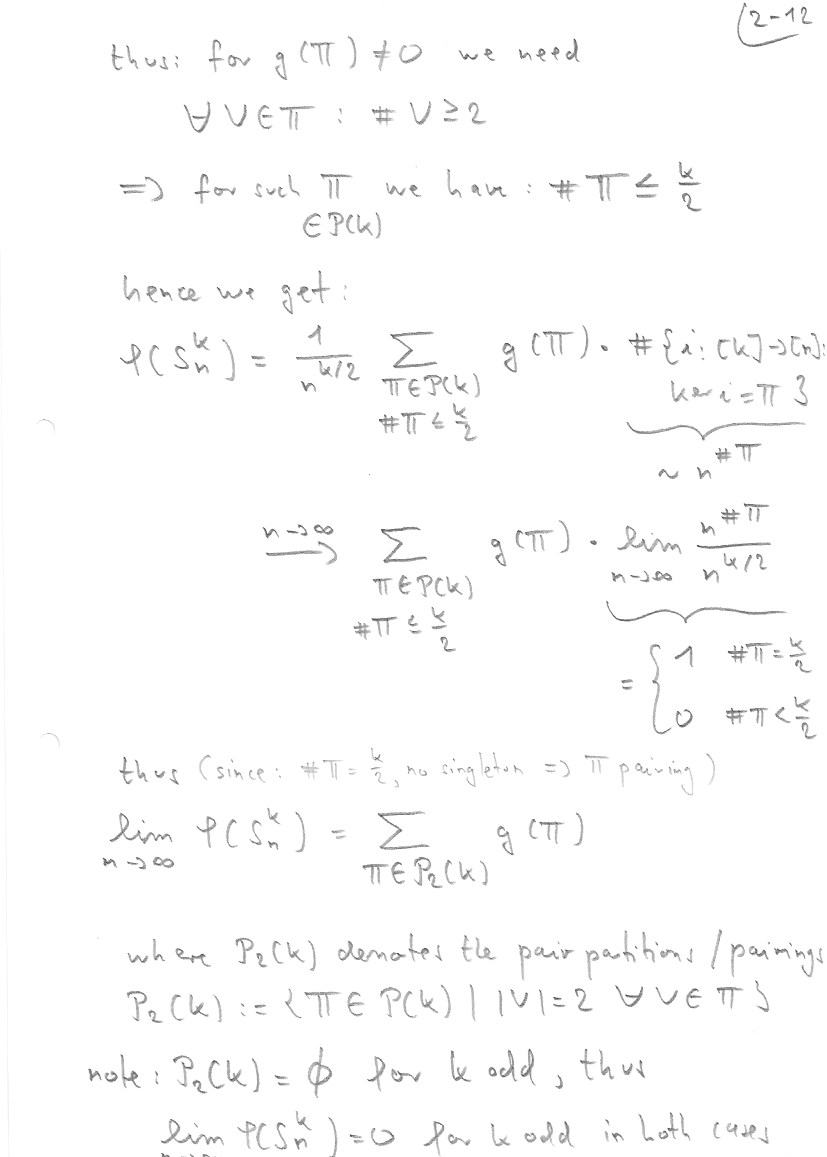 2-12
thus: for g(π) ≠ 0 we need
∀ V ∈ π : # V ≥ 2
=> for such π we have : # π ≤ k/2
∈ P(k)
hence we get:
φ(S_n^k) = 1/n^{k/2} ∑_{π∈P(k), #π ≤ k/2} g(π) · #{i: [k]→[n]: ker i = π}
~ n^{#π}
n→∞ → ∑_{π∈P(k), #π ≤ k/2} g(π) · lim_{n→∞} n^{#π}/n^{k/2}
= { 1 #π = k/2
0 #π < k/2
thus (since: #π = k/2, no singleton => π pairing)
lim_{n→∞} φ(S_n^k) = ∑_{π∈P_2(k)} g(π)
where P_2(k) denotes the pair partitions / pairings
P_2(k) := {π ∈ P(k) | |V| = 2 ∀ V ∈ π}
note: P_2(k) = ∅ for k odd, thus
lim_{n→∞} φ(S_n^k) = 0 for k odd in both cases